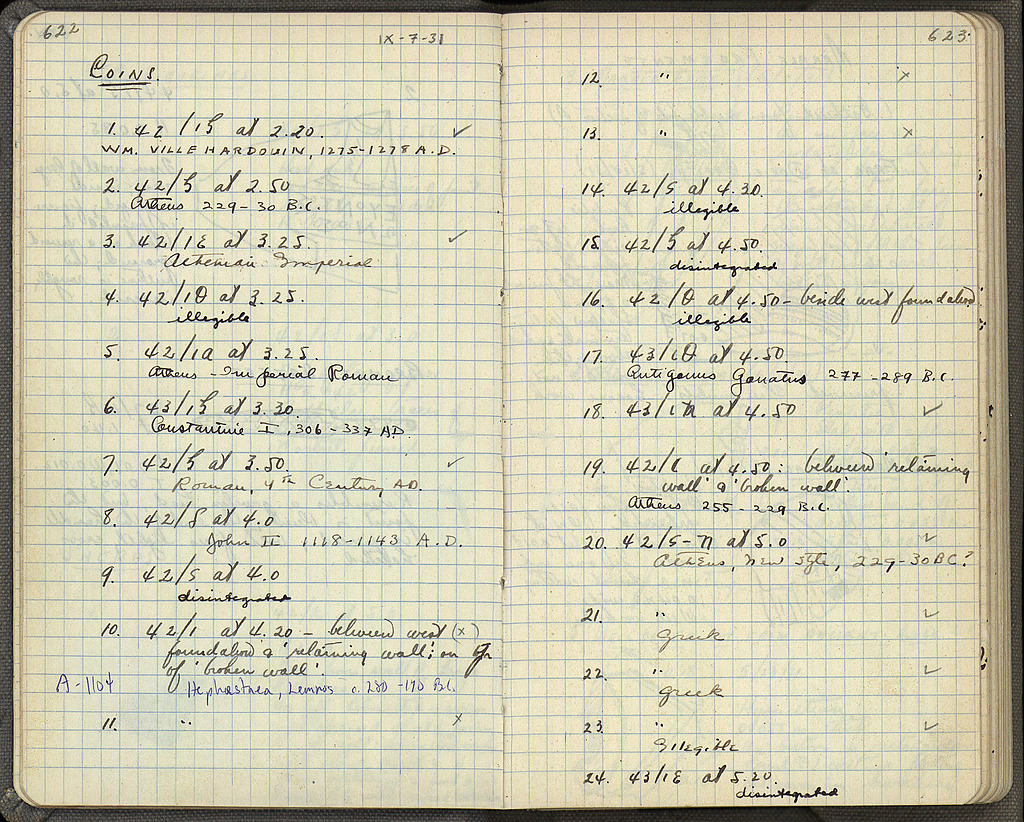 622
IX-7-31
COINS.
1. 42/15 at 2.20. ✓
WM. VILLEHARDOUIN, 1275-1278 A.D.
2. 42/5 at 2.50
Athens 229-30 B.C.
3. 42/1E at 3.25. ✓
Athenian Imperial
4. 42/1Θ at 3.25.
illegible
5. 42/1a at 3.25.
Athens - Imperial Roman
6. 43/15 at 3.30.
Constantine I, 306-337 A.D.
7. 42/5 at 3.50. ✓
Roman, 4th Century A.D.
8. 42/8 at 4.0
John II 1118-1143 A.D.
9. 42/5 at 4.0
disintegrated
10. 42/1 at 4.20 - between west (x)
foundation & 'retaining wall; on
of 'broken wall'.
A-1104 Hephaestnea, Lemnos c. 280-190 B.C.
11. " x
623.
12. " x
13. " x
14. 42/5 at 4.30
illegible
15. 42/5 at 4.50.
disintegrated
16. 42/Θ at 4.50 - beside west foundation
illegible
17. 43/1Θ at 4.50.
Antigonus Gonatus 277-239 B.C.
18. 43/1n at 4.50 ✓
19. 42/1 at 4.50: between 'retaining
wall' & 'broken wall'.
Athens 255-229 B.C.
20. 42/5-n at 5.0 ✓
Athens, new style, 229-30 BC?
21. " ✓
Greek
22. " ✓
Greek
23. " ✓
Illegible
24. 43/1E at 5.20.
disintegrated